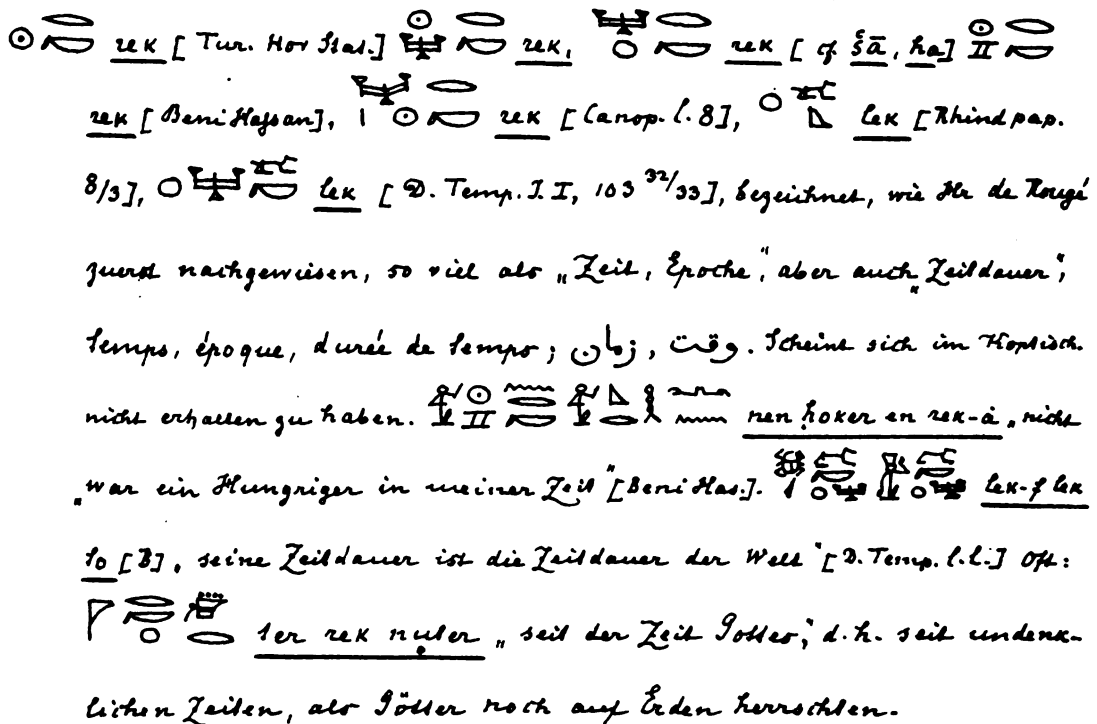 rek [Tur. Hor Stat.] rek, rek [cf śā, ha]
rek [Beni Hassan], rek [Canop. l. 8], lek [Rhind pap.
8/3], lek [D. Temp. I. I, 103 32/33], bezeichnet, wie Hr de Rougé
zuerst nachgewiesen, so viel als „Zeit, Epoche“, aber auch „Zeitdauer“,
temps, époque, durée de temps; وقت, زمان. Scheint sich im Koptisch.
nicht erhalten zu haben. nen ḥoker en rek-à „nicht
„war ein Hungriger in meiner Zeit“ [Beni Has.]. lek-f lek
to [B] „seine Zeitdauer ist die Zeitdauer der Welt“ [D. Temp. l. l.] Oft:
ter rek nuter „seit der Zeit Gottes“, d. h. seit undenk-
lichen Zeiten, als Götter noch auf Erden herrschten.